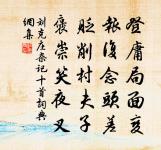 登庸局面变
報復念頭差
貶削村夫子
褒崇笑夜叉
劉克庄雜記十首詞典
網集